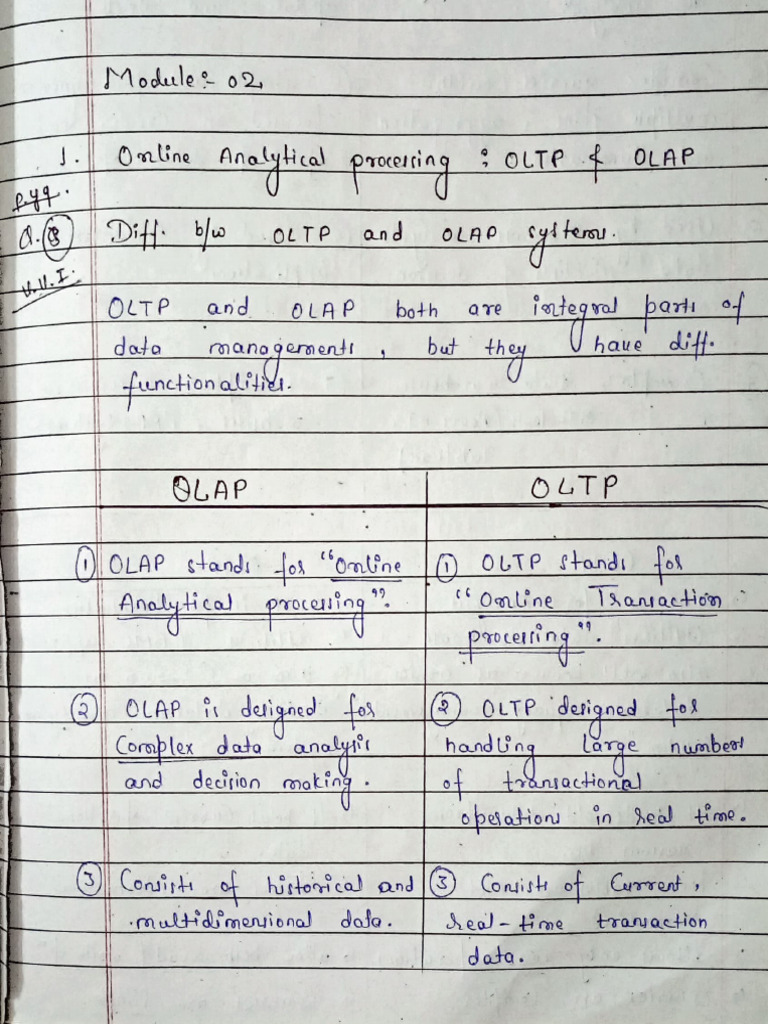 Module:- 02,
1. Online Analytical processing : OLTP & OLAP
pyq.
Q. 3 Diff. b/w OLTP and OLAP systems.
V.V.I.
OLTP and OLAP both are integral parts of
data managements, but they have diff.
functionalities.
OLAP OLTP
① OLAP stands for "Online
Analytical processing".
① OLTP stands for
"Online Transaction
processing".
② OLAP is designed for
Complex data analysis
and decision making.
② OLTP designed for
handling large numbers
of transactional
operation in real time.
③ Consists of historical and
multidimensional data.
③ Consists of Current,
real-time transaction
data.